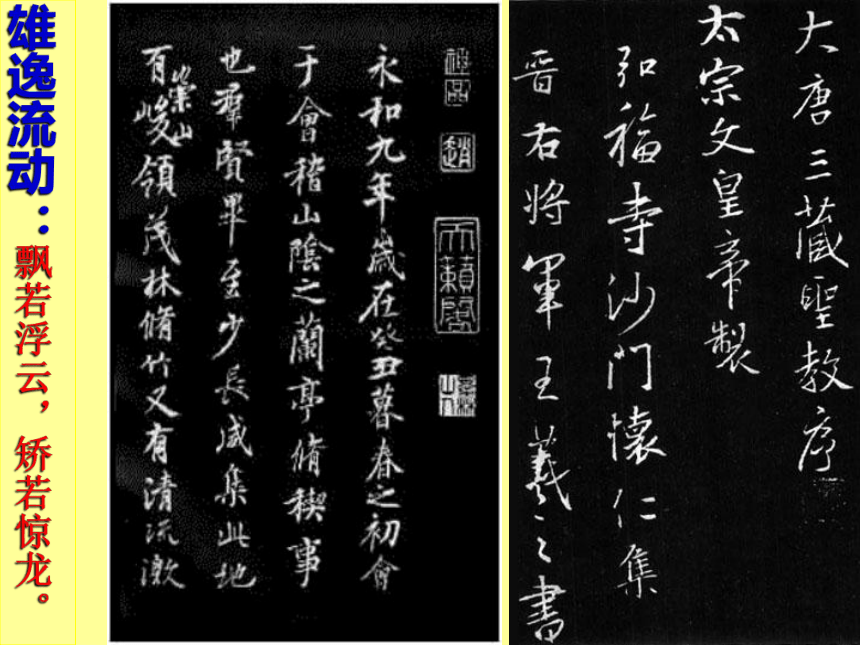 雄逸流动：飘若浮云，矫若惊龙。
永和九年歲在癸丑暮春之初會
于會稽山陰之蘭亭脩稧事
也羣賢畢至少長咸集此地
有崇山峻領茂林脩竹又有清流激
神品
趙
天籟閣
大唐三藏聖教序
太宗文皇帝製
弘福寺沙門懷仁集
晉右將軍王羲之書